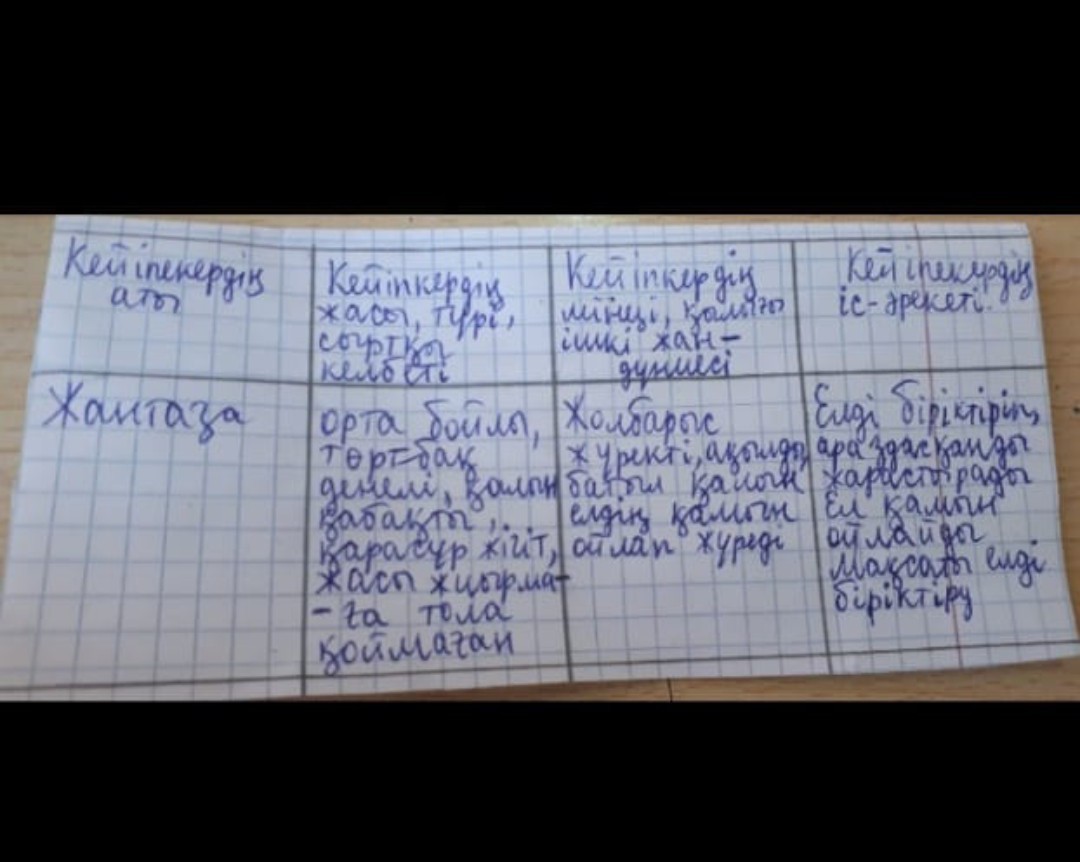 Кейіпекердің
аты
Кейіпкердің
жасы, түрі,
сыртқы
келбеті
Кейіпкердің
мінезі, қылығы
ішкі жан-
дүниесі
Кейіпекердің
іс-әрекеті.
Жантаза
орта бойлы,
төртбақ
денелі, қалың
қабақты,
қарасұр жігіт,
жасы жиырма-
-ға тола
қоймаған
Жолбарыс
жүректі, ақылды,
батыл
елдің қамын
ойлап жүреді
Елді біріктіріп,
араздасқанды
жарастырады
Ел қамын
ойлайды
Мақсаты елді
біріктіру